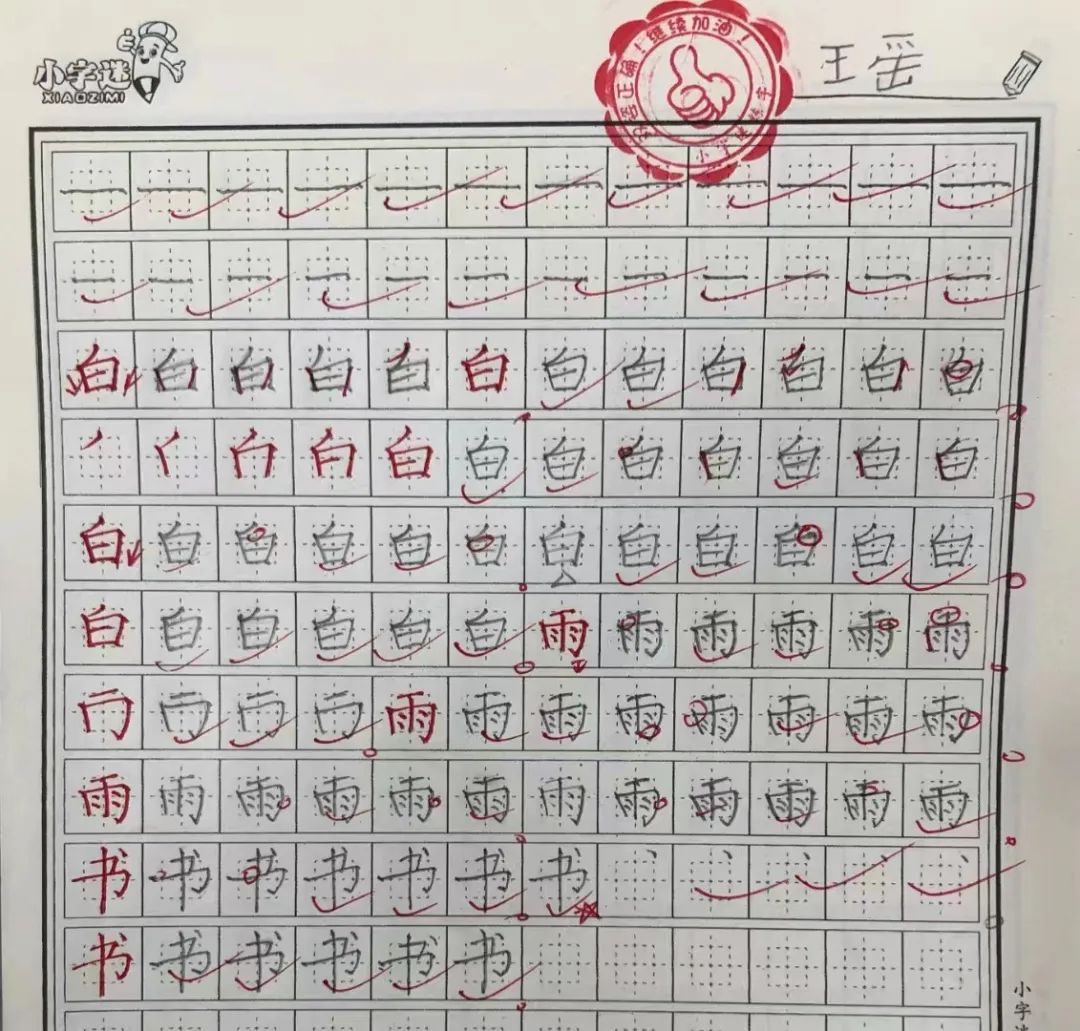 小字迷
XIAOZIMI
正确！继续加油！
小字迷练字
王䍃
一 一 一 一 一 一 一 一 一 一 一 一
一 一 一 一 一 一 一 一 一 一 一 一
白 白 白 白 白 白 白 白 白 白 白 白
白 白 白 白 白 白 白 白
白 白 白 白 白 白 白 白 白 白 白 白
白 白 白 白 白 白 雨 雨 雨 雨 雨 雨
雨 雨 雨 雨 雨 雨 雨 雨
雨 雨 雨 雨 雨 雨 雨 雨 雨 雨 雨 雨
书 书 书 书 书 书 书 丶 丶 丶 丶 丶
书 书 书 书 书 书
小字